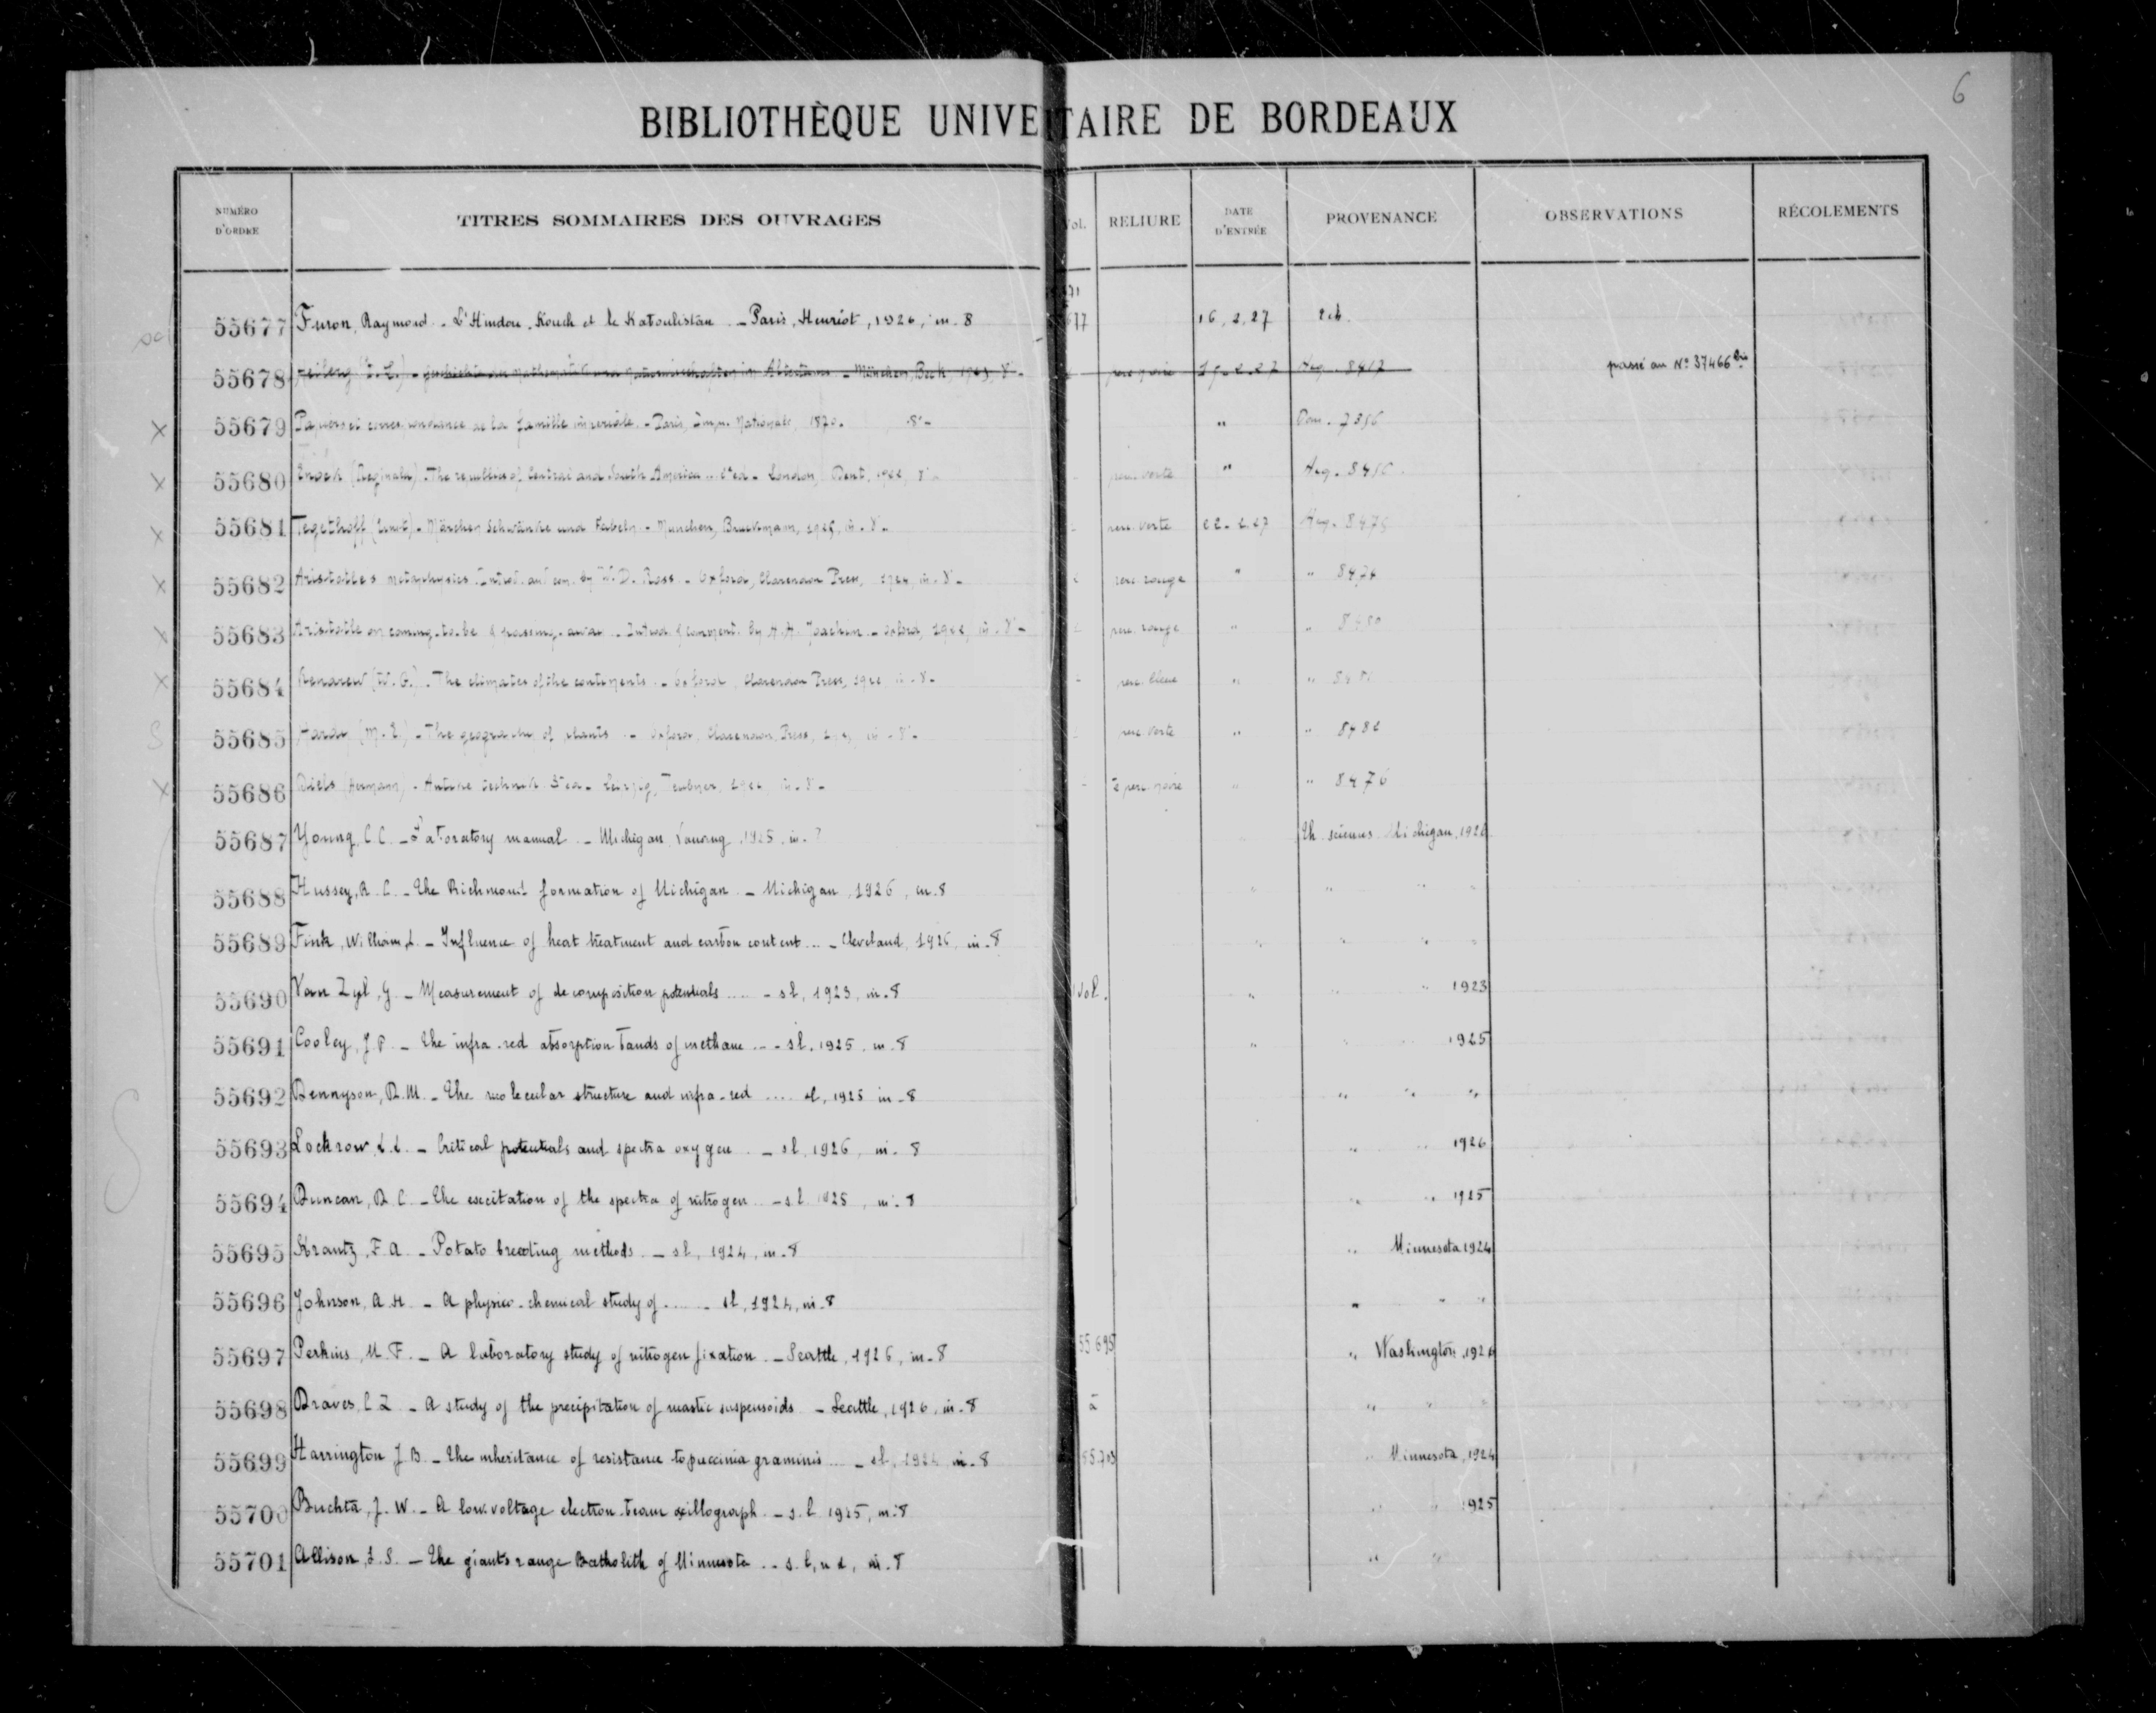 6
BIBLIOTHÈQUE UNIVE TAIRE DE BORDEAUX
NUMÉRO D'ORDRE TITRES SOMMAIRES DES OUVRAGES Vol. RELIURE DATE D'ENTRÉE PROVENANCE OBSERVATIONS RÉCOLEMENTS
55677 Furon, Raymond. - L'Hindou-Kouch et le Kaboulistan - Paris, Henriot, 1926, in-8 16.2.27 Ech.
55678 München, Beck, passé au N° 37466 bis
X 55679 Papiers et correspondance de la famille impériale. - Paris, Imp. Nationale, 1870. 8°- " Dom. 7356
X 55680 Enock (Reginald). The republics of Central and South America - London, Dent, 1922, 8°- perc. verte " Acq.
X 55681 Tegethoff (Ernst) - Märchen Schwänke und Fabeln - München, Bruckmann, 1925, in-8°- perc. verte 22.2.27 Acq. 8475
X 55682 Aristotle's metaphysics. Introd. and com. by W. D. Ross - Oxford, Clarendon Press, 1924, in-8°- perc. rouge " " 8474
X 55683 Aristotle on coming-to-be & passing-away - Introd. & comment. by H. H. Joachim - Oxford, 1922, in-8°- perc. rouge " " 8480
X 55684 Kendrew (W. G.). The climates of the continents - Oxford, Clarendon Press, 1922 in-8- perc. bleue " "
S 55685 Hardy (M. E.) - The geography of plants - Oxford, Clarendon Press, in-8°- perc. verte " " 8482
X 55686 Diels (Hermann) - Antike Technik 3e ed - Leipzig, Teubner, in-8- perc. noire " " 8476
55687 Young, C.C. - Laboratory manual - Michigan, Lansing, 1925, in-8 Th. sciences Michigan, 1926
55688 Hussey, R.C. - The Richmond formation of Michigan - Michigan, 1926, in-8 " " " "
55689 Fink, William, L. - Influence of heat treatment and carbon content ... - Cleveland, 1926, in-8 " " " "
55690 Van Zyl, G. - Measurement of decomposition potentials ..... - sl, 1923, in-8 1 vol. " " " 1923
55691 Cooley, J.P. - The infra-red absorption bands of methane ... - sl, 1925, in-8 " " 1925
55692 Dennyson, D.M. - The molecular structure and infra-red .... sl, 1925 in-8 " " "
55693 Lockrow, L.L. - Critical potentials and spectra oxygen - sl, 1926, in-8 " " 1926
55694 Duncan, D.C. - The excitation of the spectra of nitrogen - s.l. 1925, in-8 " " 1925
55695 Krantz, F.A. - Potato breeding methods - sl, 1924, in-8 " Minnesota 1924
55696 Johnson, A.H. - A physico-chemical study of ...... - sl, 1924, in-8 " " "
55697 Perkins, M.F. - A laboratory study of nitrogen fixation - Seattle, 1926, in-8 55695 " Washington, 1926
55698 Draves, C.Z. - A study of the precipitation of mastic suspensoids - Seattle, 1926, in-8 à " " "
55699 Harrington J.B. - The inheritance of resistance to puccinia graminis ... - sl, 1924 in-8 55703 " Minnesota, 1924
55700 Buchta, J.W. - A low-voltage electron-beam oxillograph. - s.l. 1925, in-8 " " 1925
55701 Allison, I.S. - The giants range Batholith of Minnesota - s.l, n d, in-8 " "